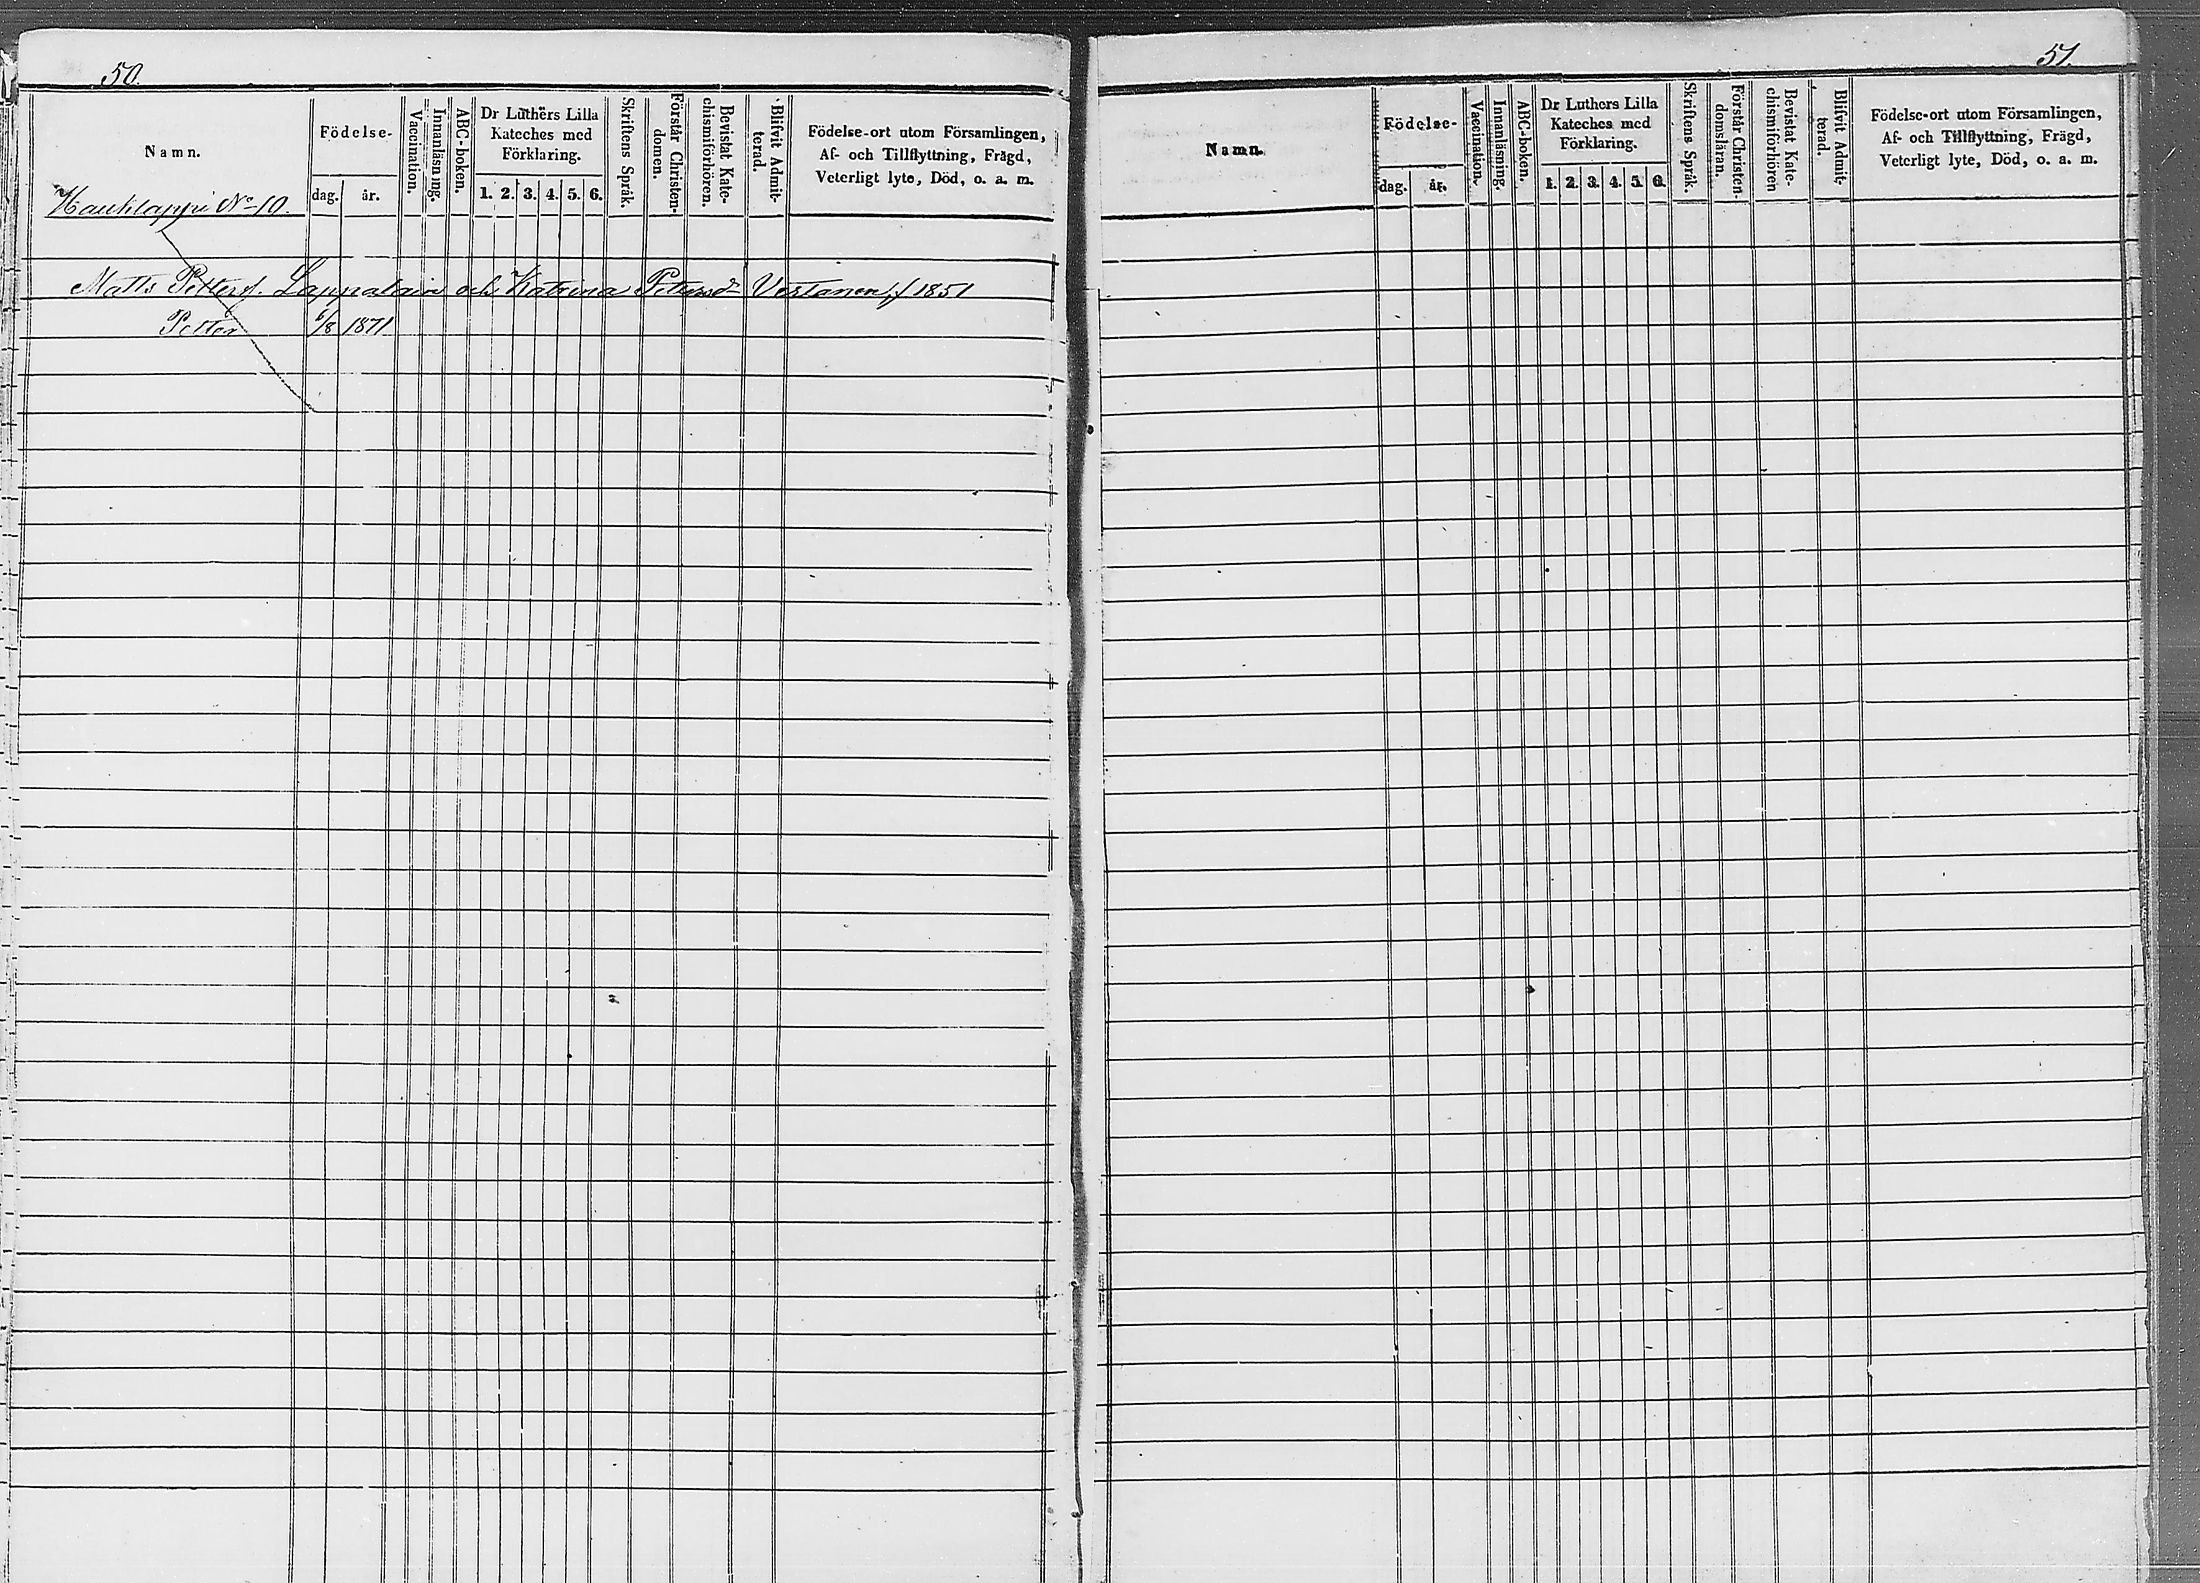 50.
Namn.
Födelse-
dag. år.
Vaccination.
Innanläsning.
ABC-boken.
Dr Luthers Lilla
Kateches med
Förklaring.
1. 2. 3. 4. 5. 6.
Skriftens Språk.
Förstår Christen-
domen.
Bevistat Kate-
chismiförhören.
Blifvit Admit-
terad.
Födelse-ort utom Församlingen,
Af- och Tillflyttning, Frägd,
Veterligt lyte, Död, o. a. m.
Hauklappi No 10.
Matts Petters. Lappalain och Katrina Petersd. Vartanen, f 1851
Petter 6/8 1871
51.
Namn.
Födelse-
dag. år.
Vaccination.
Innanläsning.
ABC-boken.
Dr Luthers Lilla
Kateches med
Förklaring.
1. 2. 3. 4. 5. 6.
Skriftens Språk.
Förstår Christen-
domsläran.
Bevistat Kate-
chismiförhören
Blifvit Admit-
terad.
Födelse-ort utom Församlingen,
Af- och Tillflyttning, Frägd,
Veterligt lyte, Död, o. a. m.